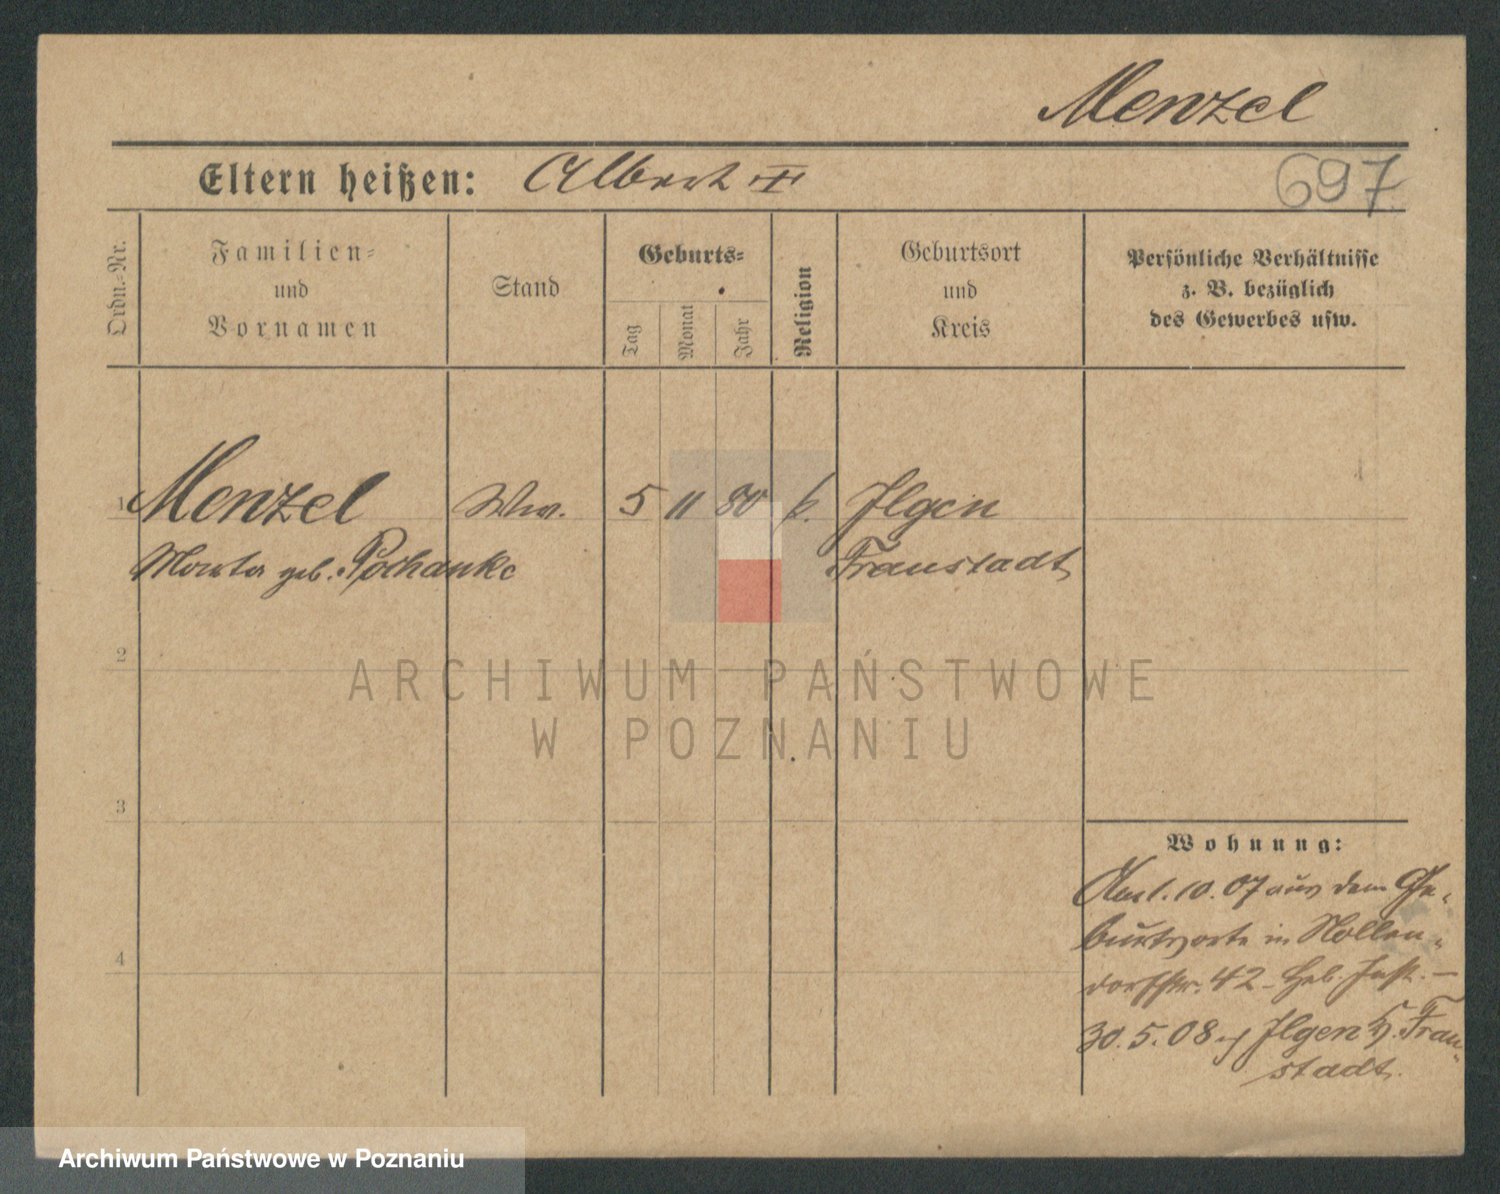 Menzel
Eltern heißen: Albert
697
Ordn.-Nr.
Familien-
und
Vornamen
Stand
Geburts-
Tag
Monat
Jahr
Religion
Geburtsort
und
Kreis
Persönliche Verhältnisse
z. B. bezüglich
des Gewerbes usw.
1 Menzel Ww. 5 11 80 k. Ilgen
Marta geb. Pochanke Fraustadt
2
ARCHIWUM PAŃSTWOWE
W POZNANIU
3
Wohnung:
1.10.07 aus dem Ge-
burtsorte in Nollen-
dorfstr. 42
4
30.5.08 Ilgen Frau-
stadt.
Archiwum Państwowe w Poznaniu